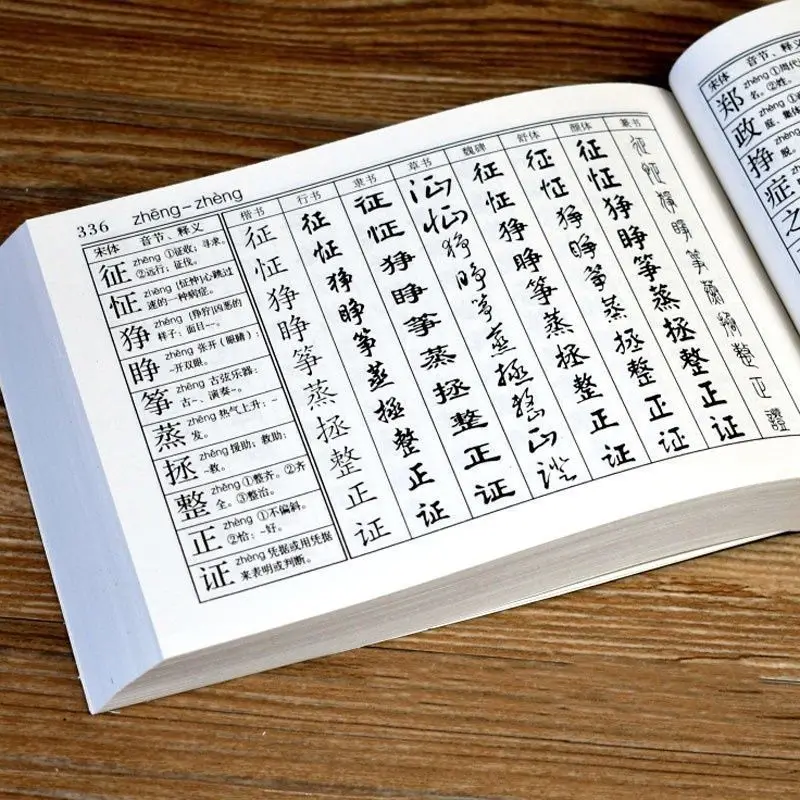 336 zhēng–zhèng
宋体 音节、释义 楷书 行书 隶书 草书 魏碑 舒体 颜体 篆书
征 zhēng ①征收；寻求。 征 征 征 征 征 征 征 征
②远行；征伐。
怔 zhēng [怔忡]心跳过 怔 怔 怔 怔 怔 怔 怔 怔
速的一种病症。
狰 zhēng [狰狞]凶恶的 狰 狰 狰 狰 狰 狰 狰 狰
样子：面目~~。
睁 zhēng 张开（眼睛）： 睁 睁 睁 睁 睁 睁 睁 睁
~开双眼。
筝 zhēng 古弦乐器： 筝 筝 筝 筝 筝 筝 筝 筝
古~、演奏~。
蒸 zhēng 热气上升：~ 蒸 蒸 蒸 蒸 蒸 蒸 蒸 蒸
发。
拯 zhěng 援助；救助： 拯 拯 拯 拯 拯 拯 拯 拯
~救。
整 zhěng ①整齐。②齐 整 整 整 整 整 整 整 整
全。③整治。
正 zhèng ①不偏斜。 正 正 正 正 正 正 正 正
②恰：~好。
证 zhèng 凭据或用凭据 证 证 证 证 证 证 证 證
来表明或判断。
宋体 音节、释义
郑 zhèng ①周代
名。②姓。
政 zhèng
庭、集体
挣 zhèng
脱。
症 zhèng
之